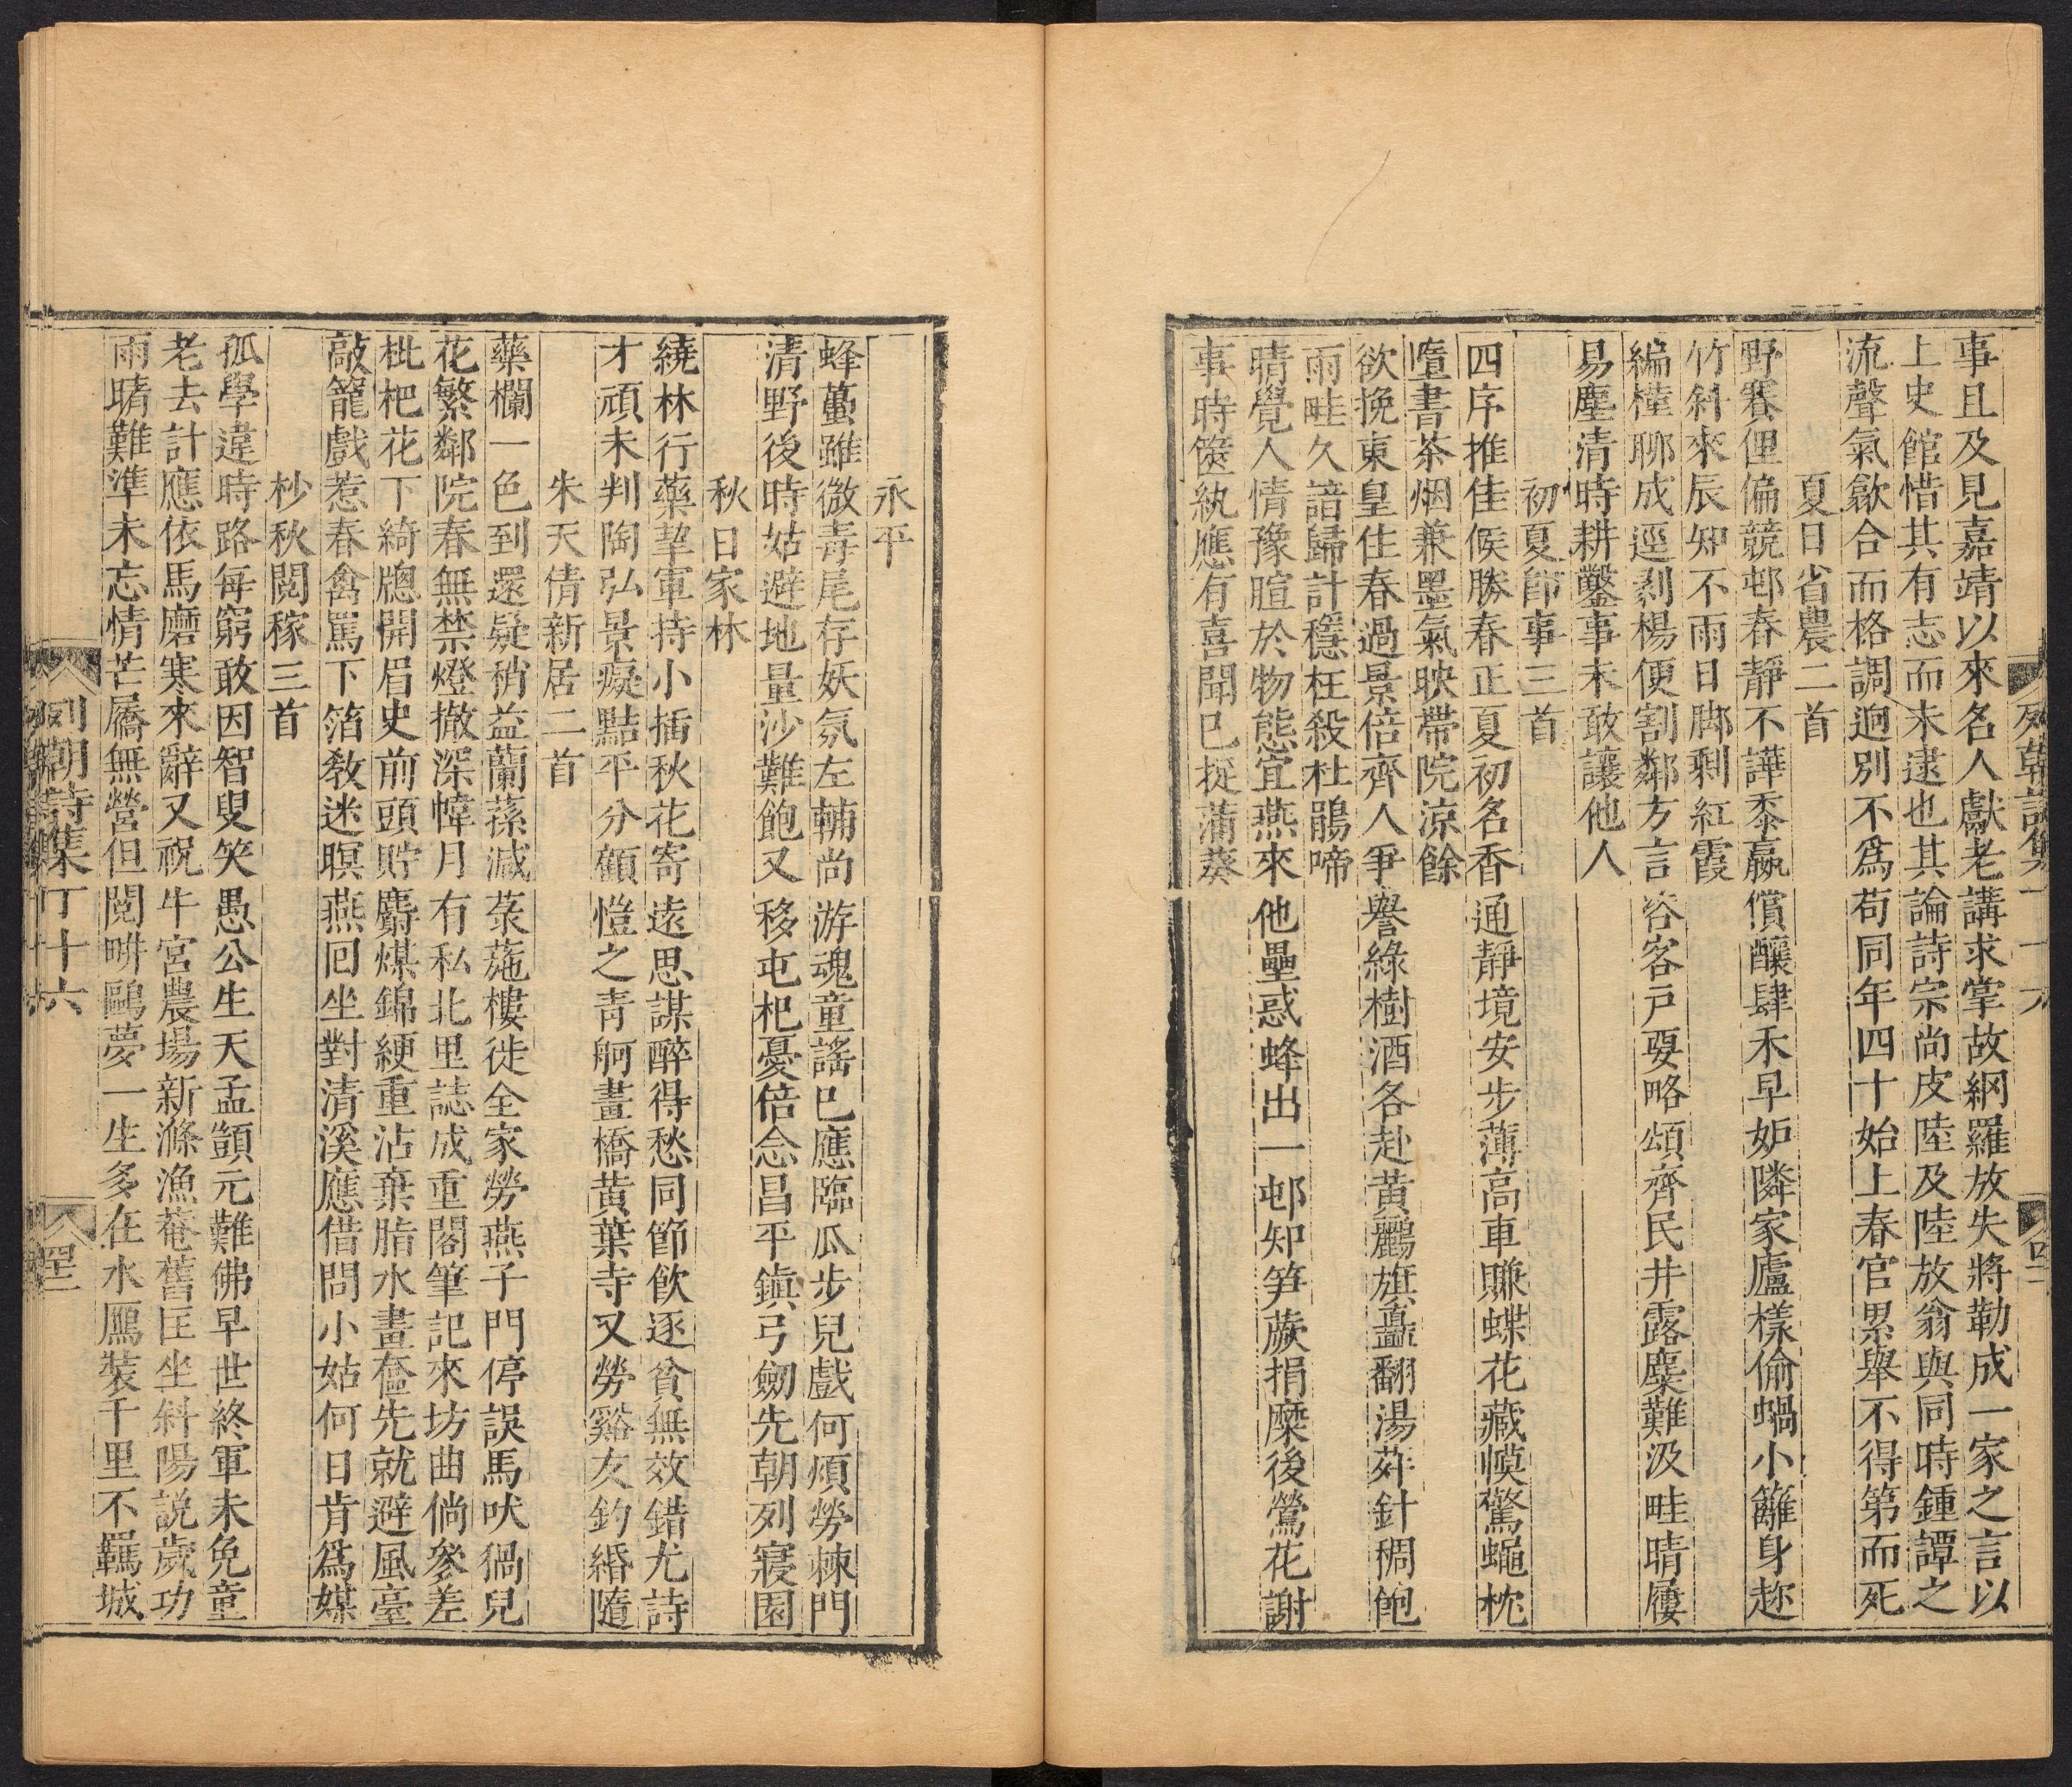 事且及見嘉靖以來名人獻老講求掌故網羅放失將勒成一家之言以
上史館惜其有志而未逮也其論詩宗尚皮陸及陸放翁與同時鍾譚之
流聲氣歙合而格調逈別不爲苟同年四十始上春官累舉不得第而死
夏日省農二首
野賽俚偏競邨春靜不譁黍嬴償釀肆禾早妒隣家廬樣偷蝸小籬身趂
竹斜來辰知不雨日脚剩紅霞
編槿聊成逕剥楊便割鄰方言咨客戸要略頌齊民井露麋難汲畦晴屨
易塵清時耕鑿事未敢讓他人
初夏即事三首
四序推佳候勝春正夏初名香通靜境安步薄高車賺蝶花藏幙驚蠅枕
墮書茶烟兼墨氣映帶院涼餘
欲挽東皇住春過景倍齊人爭譽綠樹酒各赴黃鸝旗矗翻湯荈針稠飽
雨畦久諳歸計穩枉殺杜鵑啼
晴覺人情豫暄於物態宜燕來他壘惑蜂出一邨知笋蕨捐糜後鶯花謝
事時篋紈應有喜聞已捉蒲葵
永平
蜂蠆雖微毒尾存妖氛左輔尚游魂童謠已應臨瓜步兒戲何煩勞棘門
清野後時姑避地量沙難飽又移屯杞憂倍念昌平鎭弓劒先朝列寢園
秋日家林
繞林行藥挈軍持小插秋花寄遠思謀醉得愁同節飮逐貧無效錯尤詩
才頑未判陶弘景癡黠平分顧愷之靑舸畫橋黃葉寺又勞谿友釣緡隨
朱天倩新居二首
藥欄一色到還疑稍益蘭蓀減菉葹樓徙全家勞燕子門停誤馬吠猧兒
花繁鄰院春無禁燈撤深幃月有私北里誌成重閣筆記來坊曲倘參差
枇杷花下綺牕開眉史前頭貯麝煤錦綆重沾棄脂水畫奩先就避風臺
敲籠戲惹春禽罵下箔敎迷暝燕回坐對清溪應借問小姑何日肯爲媒
杪秋閱稼三首
孤學違時路每窮敢因智叟笑愚公生天孟顗元難佛早世終軍未免童
老去計應依馬磨寒來辭又祝牛宮農場新滌漁菴舊匡坐斜陽説歲功
雨晴難準未忘情芒屩無營但閲畊鷗夢一生多在水鴈裝千里不羈城
列朝詩集丁十六